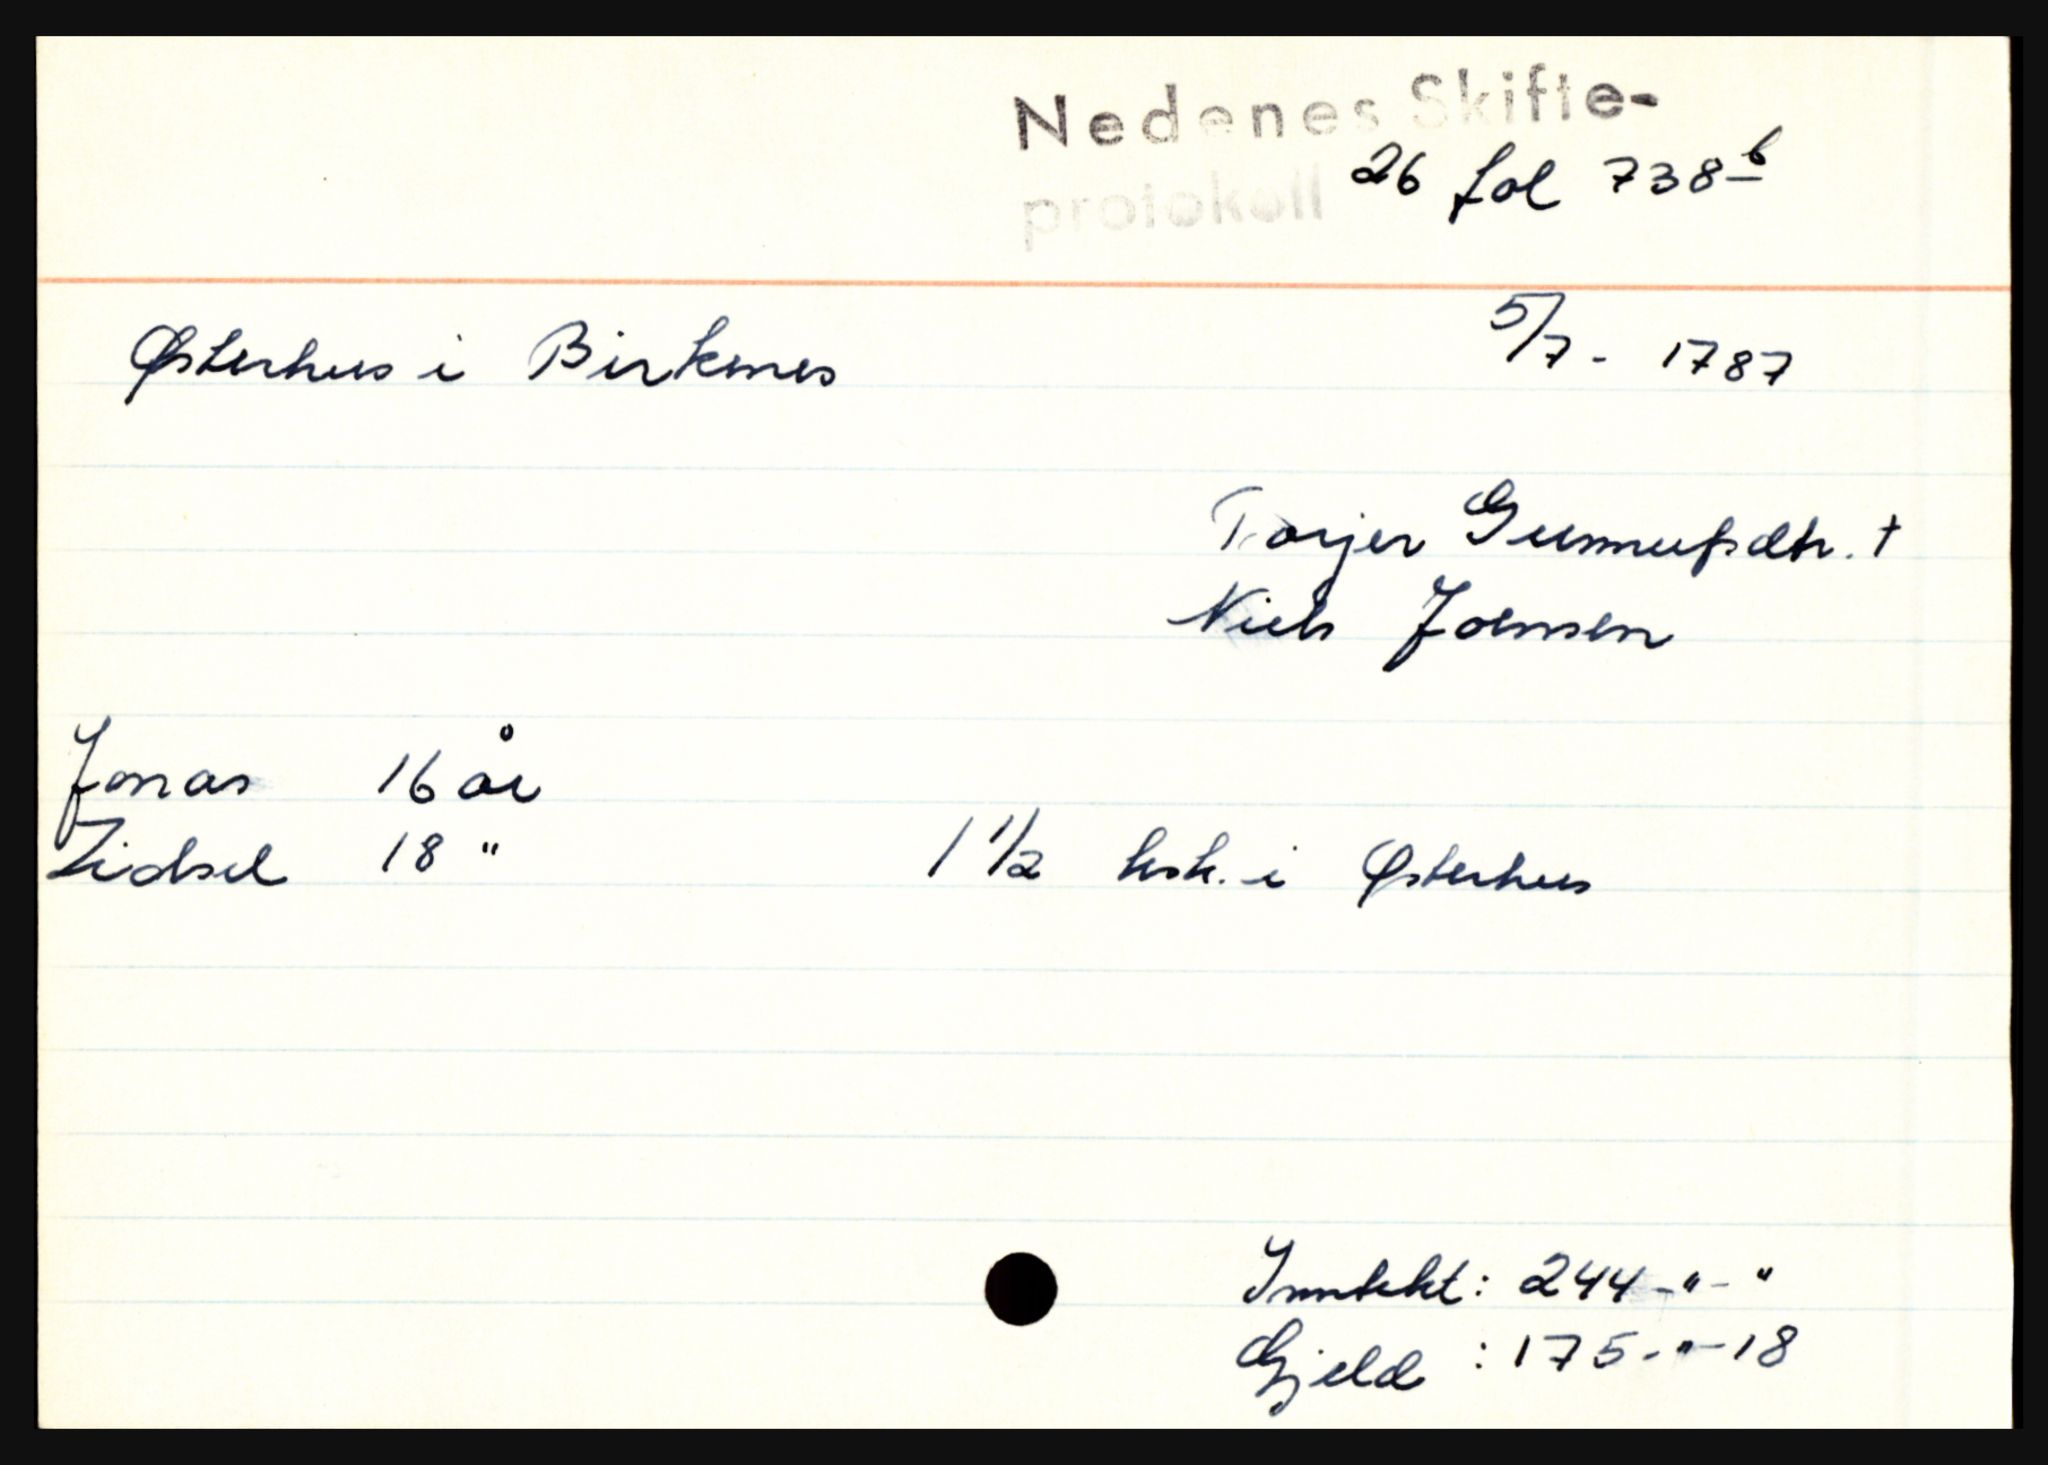 Nedenes Skifte-
protokoll 26 fol 738 b
Østerhus i Birkenes 5/7 - 1787
Torjer Gunnufsdtr. †
Niels Joensen
Jonas 16 år
Zidsel 18 "
1 1/2 ksk. i Østerhus
Inntekt: 244-"-"
Gjeld : 175-"-18